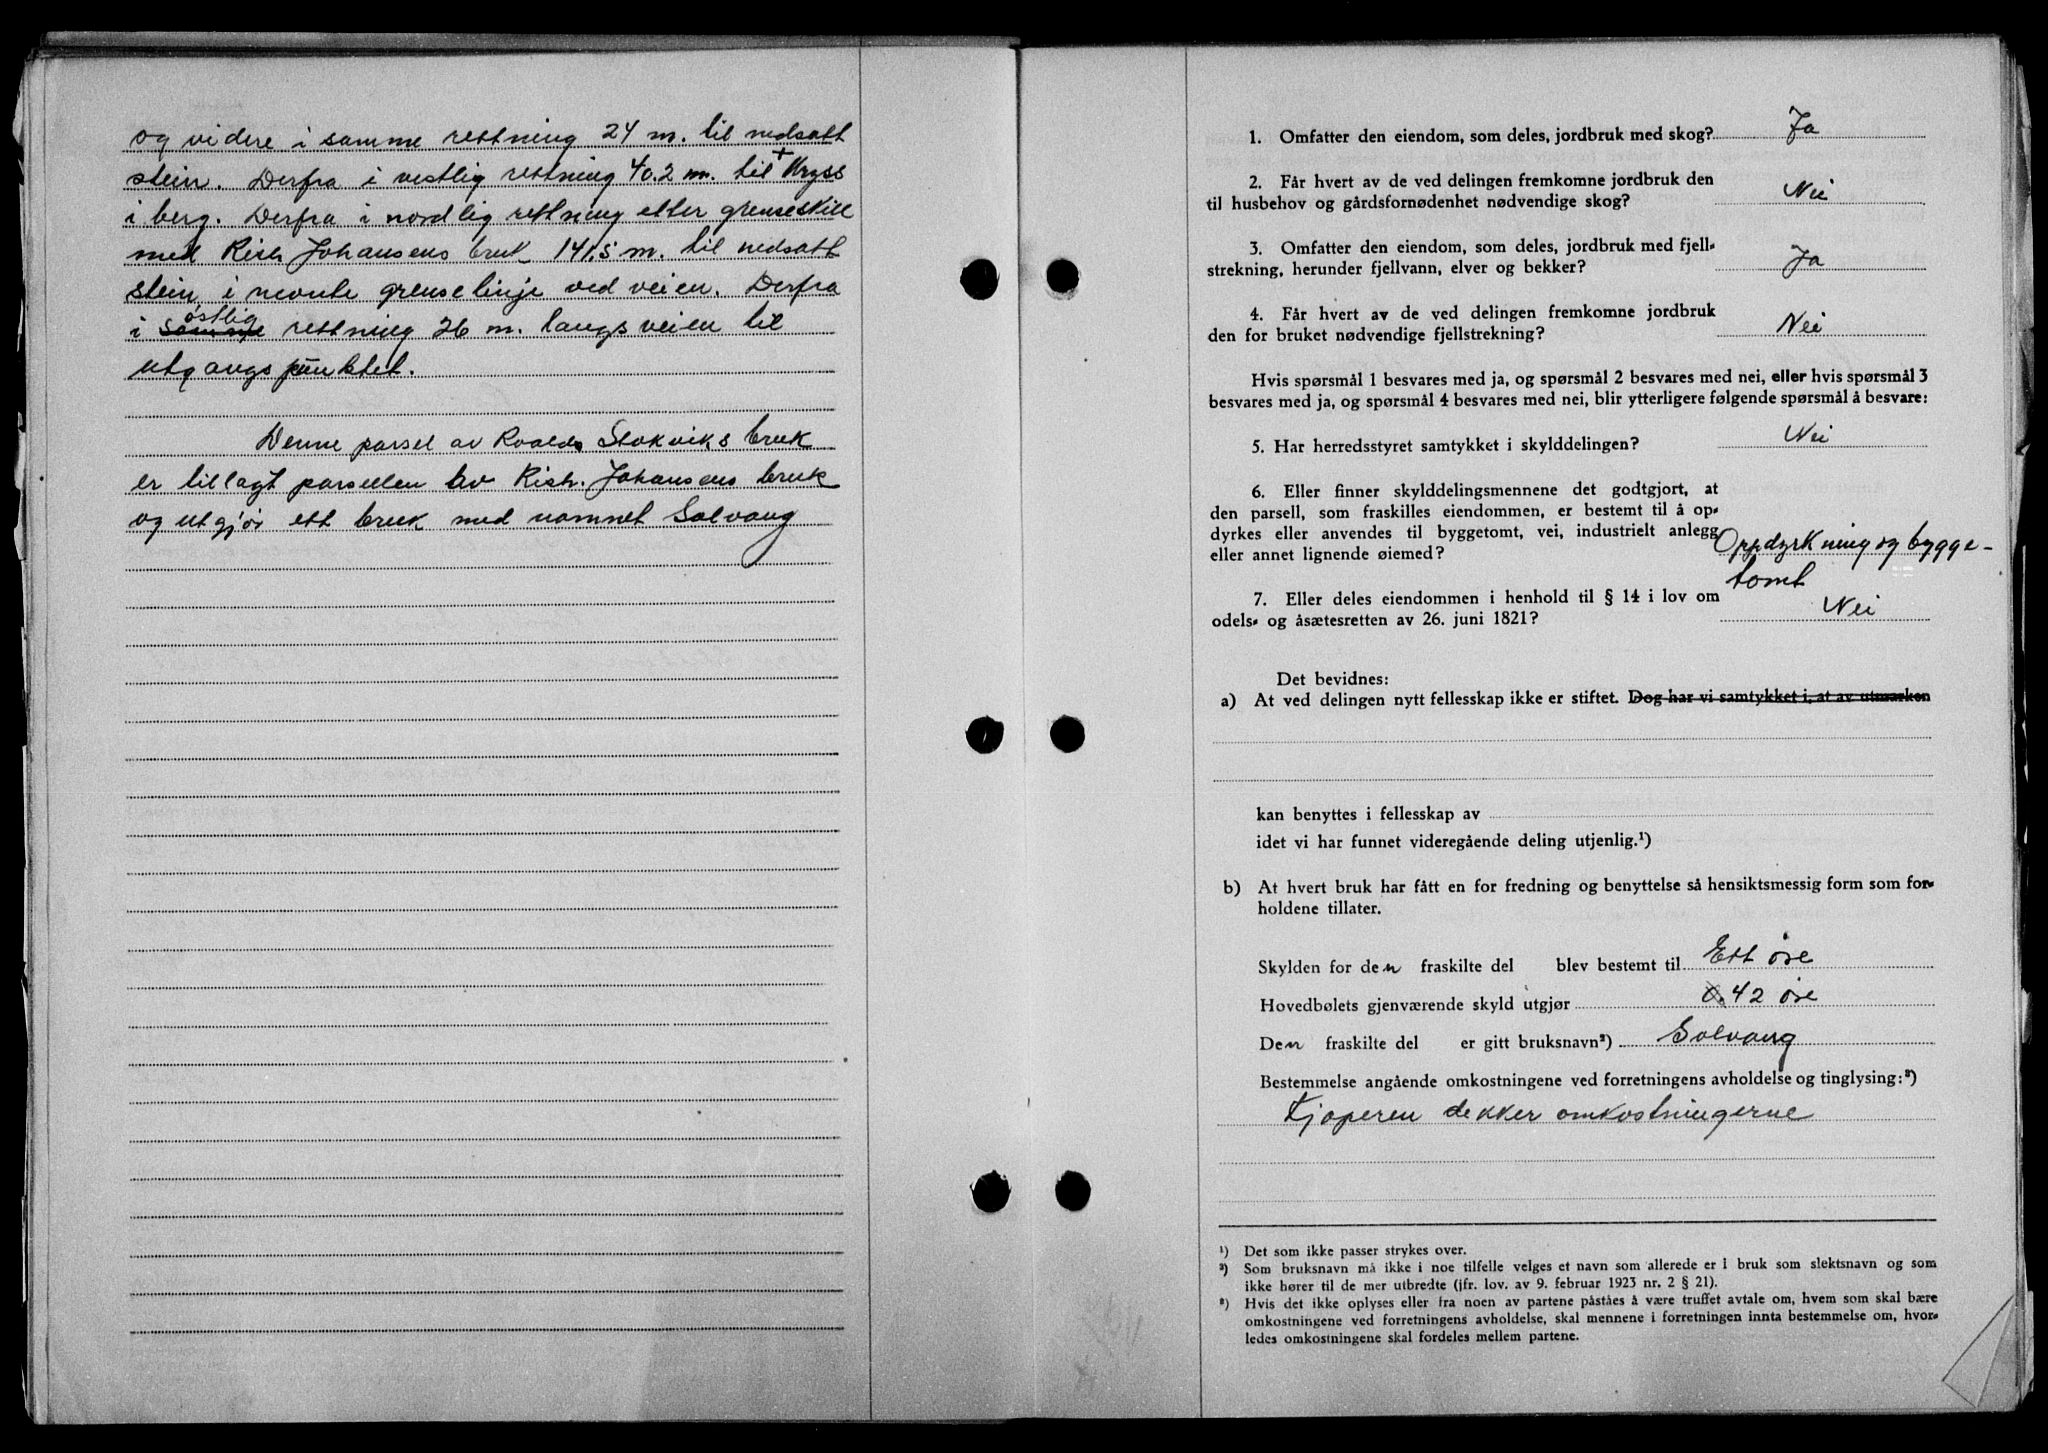 og videre i samme rettning 24 m. til nedsatt
stein. Derfra i vestlig rettning 40.2 m. til + Kryss
i berg. Derfra i nordlig rettning etter grenseskill
med Rich. Johansens bruk 141,5 m. til nedsatt
stein i nevnte grenselinje ved veien. Derfra
i samme østlig rettning 26 m. langs veien til
utgangspunktet.
Denne parsel av Roalds Stokviks bruk
er tillagt parsellen av Rich. Johansens bruk
og utgjør ett bruk med navnet Solvang
1. Omfatter den eiendom, som deles, jordbruk med skog? Ja
2. Får hvert av de ved delingen fremkomne jordbruk den
til husbehov og gårdsfornødenhet nødvendige skog? Nei
3. Omfatter den eiendom, som deles, jordbruk med fjell-
strekning, herunder fjellvann, elver og bekker? Ja
4. Får hvert av de ved delingen fremkomne jordbruk
den for bruket nødvendige fjellstrekning? Nei
Hvis spørsmål 1 besvares med ja, og spørsmål 2 besvares med nei, eller hvis spørsmål 3
besvares med ja, og spørsmål 4 besvares med nei, blir ytterligere følgende spørsmål å besvare:
5. Har herredsstyret samtykket i skylddelingen? Nei
6. Eller finner skylddelingsmennene det godtgjort, at
den parsell, som fraskilles eiendommen, er bestemt til å op-
dyrkes eller anvendes til byggetomt, vei, industrielt anlegg
eller annet lignende øiemed? Oppdyrkning og bygge-
tomt
7. Eller deles eiendommen i henhold til § 14 i lov om
odels- og åsætesretten av 26. juni 1821? Nei
Det bevidnes:
a) At ved delingen nytt fellesskap ikke er stiftet. Dog har vi samtykket i, at av utmarken
kan benyttes i fellesskap av
idet vi har funnet videregående deling utjenlig.¹)
b) At hvert bruk har fått en for fredning og benyttelse så hensiktsmessig form som for-
holdene tillater.
Skylden for den fraskilte del blev bestemt til Ett øre
Hovedbølets gjenværende skyld utgjør 0.42 øre
Den fraskilte del er gitt bruksnavn²) Solvang
Bestemmelse angående omkostningene ved forretningens avholdelse og tinglysing:³)
Kjøperen dekker omkostningerne
¹) Det som ikke passer strykes over.
²) Som bruksnavn må ikke i noe tilfelle velges et navn som allerede er i bruk som slektsnavn og som
ikke hører til de mer utbredte (jfr. lov. av 9. februar 1923 nr. 2 § 21).
³) Hvis det ikke oplyses eller fra noen av partene påståes å være truffet avtale om, hvem som skal bære
omkostningene ved forretningens avholdelse, skal mennene i forretningen innta bestemmelse om, hvor-
ledes omkostningene skal fordeles mellem partene.